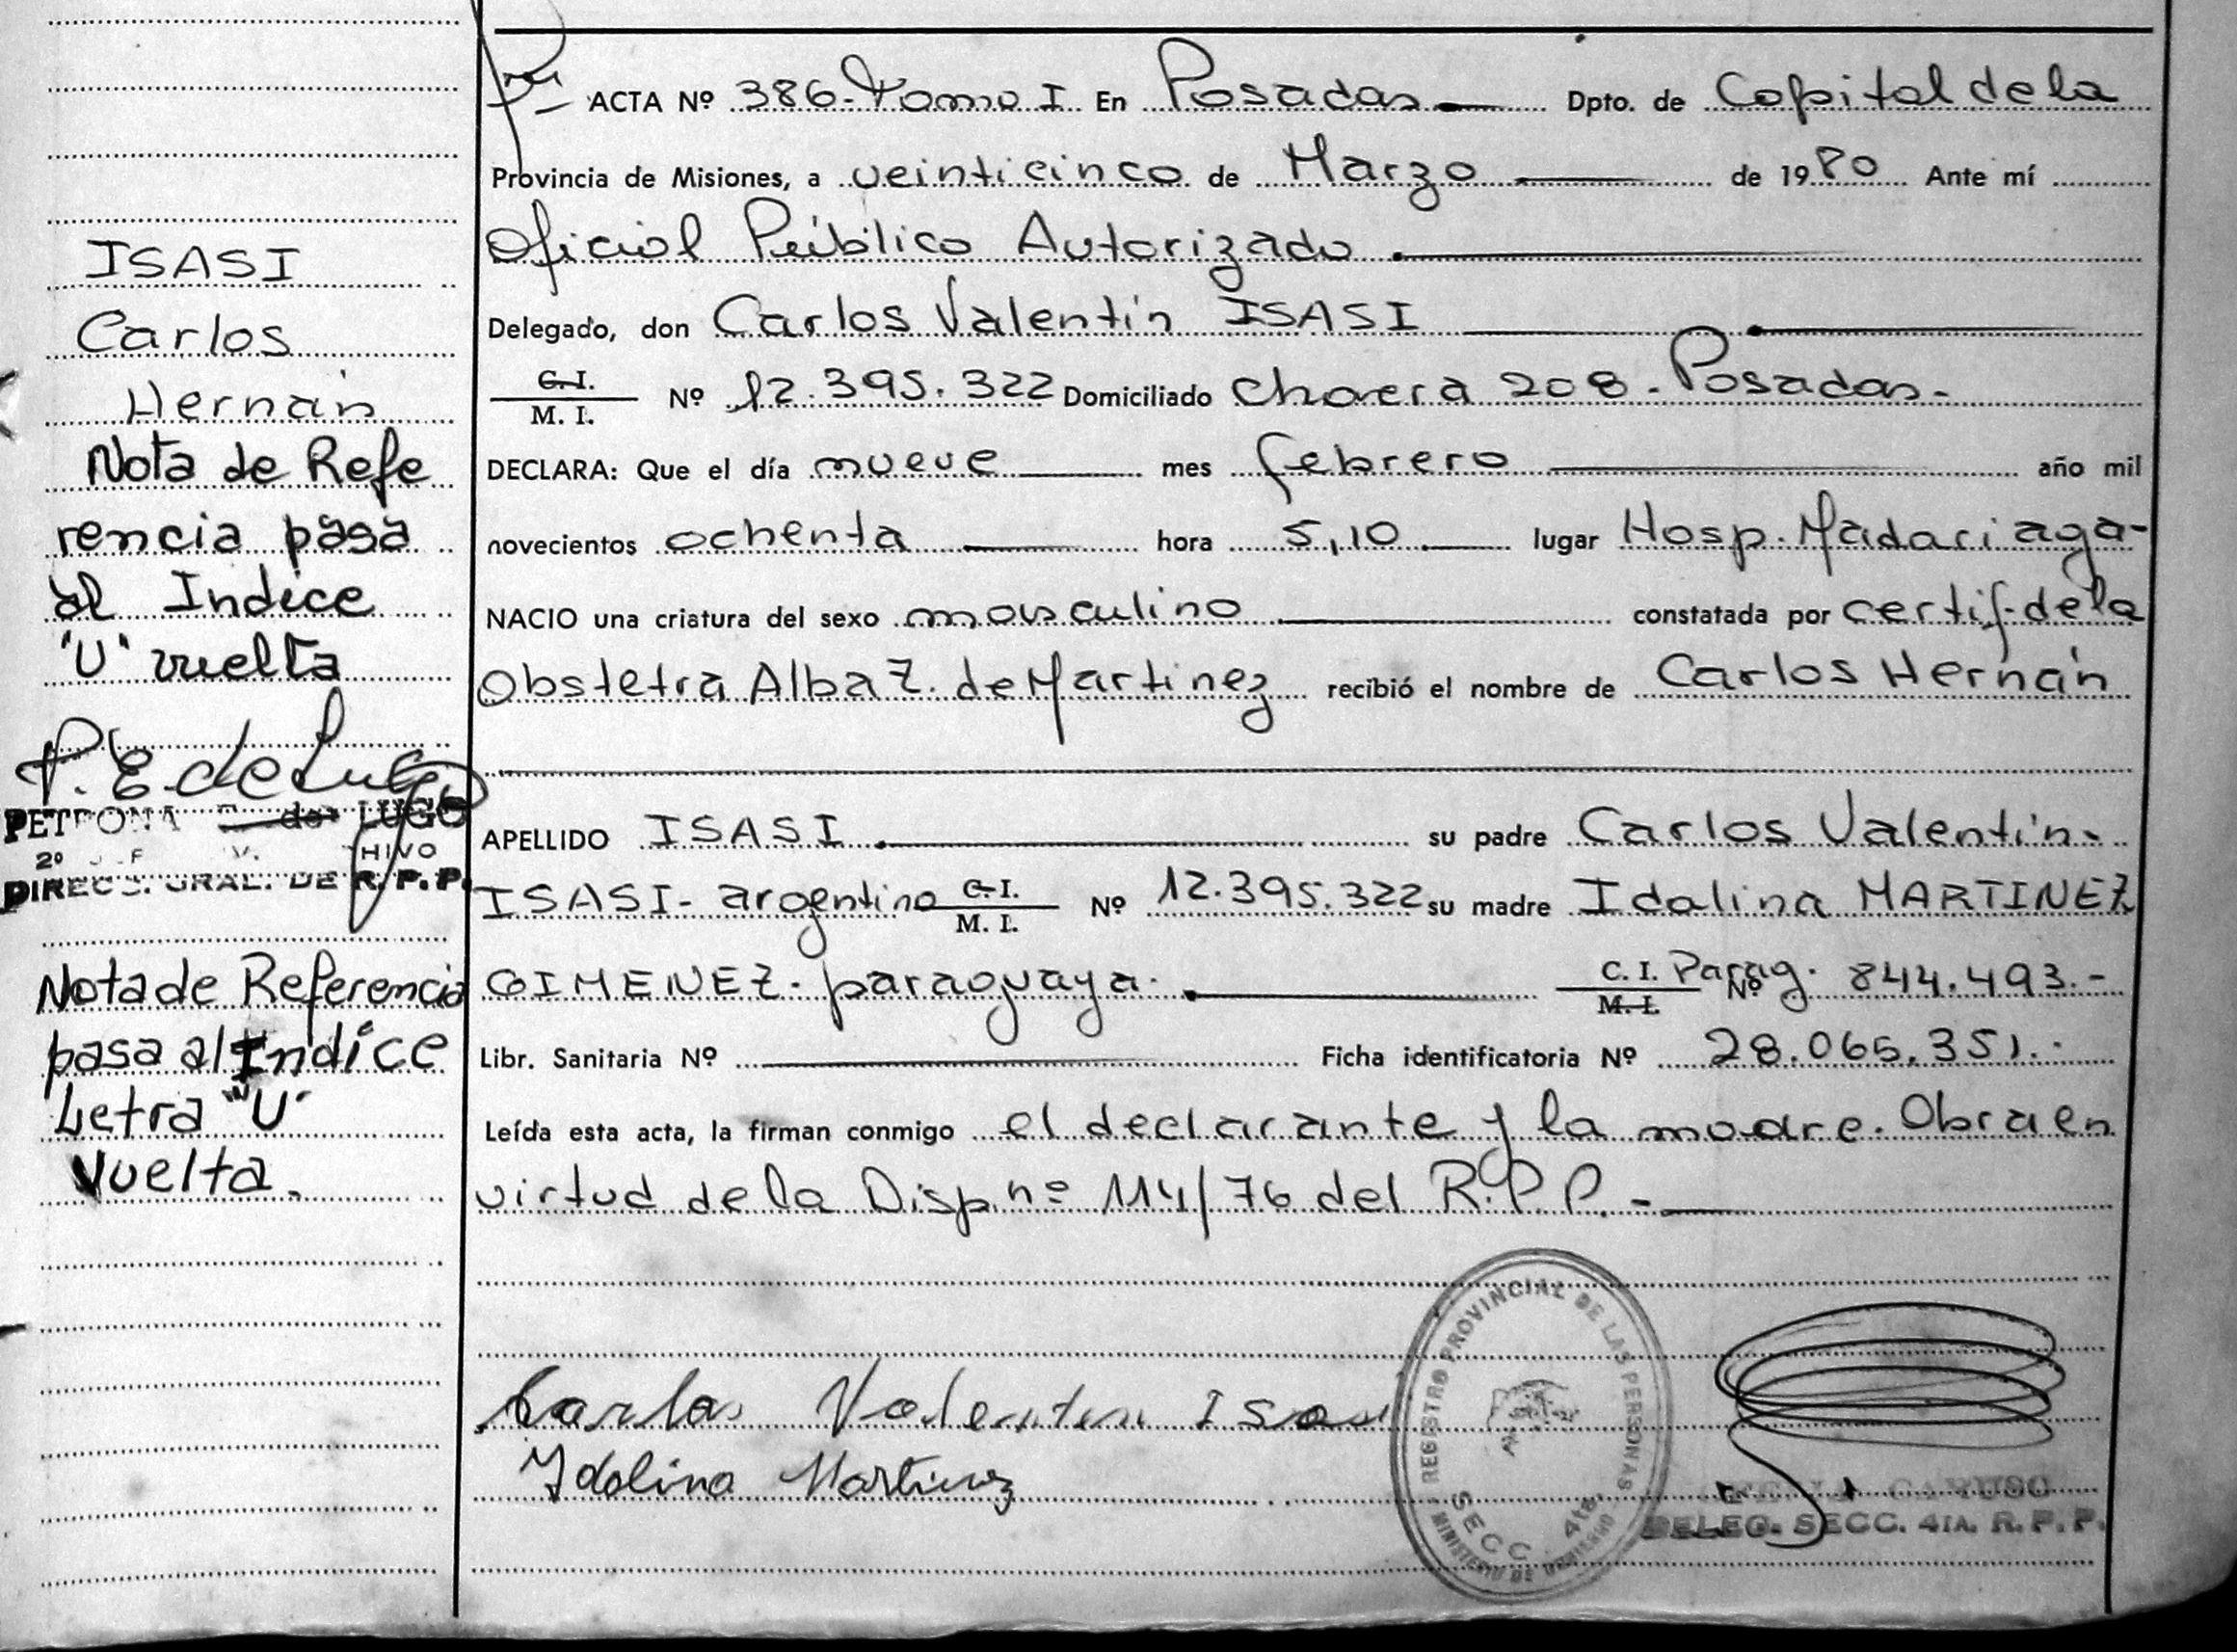 ISASI
Carlos
Hernán
Nota de Refe
rencia pasa
al Indice
"U" vuelta
P. E. de Lugo
PETRONA E. de LUGO
DIREC. GRAL. DE R. P. P.
Nota de Referencia
pasa al Indice
Letra "U"
Vuelta.
ACTA Nº 386-Tomo I En Posadas Dpto. de Capital de la
Provincia de Misiones, a veinticinco de Marzo de 1980 Ante mí
Oficial Público Autorizado.
Delegado, don Carlos Valentín ISASI
C. I.
M. I. Nº 12.395.322 Domiciliado Chacra 208. Posadas.-
DECLARA: Que el día nueve mes febrero año mil
novecientos ochenta hora 5,10 lugar Hosp. Madariaga-
NACIO una criatura del sexo masculino constatada por certif. de la
Obstetra Alba Z. de Martinez recibió el nombre de Carlos Hernán
APELLIDO ISASI su padre Carlos Valentín-
ISASI- argentino C. I.
M. I. Nº 12.395.322 su madre Idalina MARTINEZ
GIMENEZ- paraguaya. C. I. Parag.
M. I. Nº 844.493.-
Libr. Sanitaria Nº Ficha identificatoria Nº 28.065.351.-
Leída esta acta, la firman conmigo el declarante y la madre. Obra en
virtud de la Disp. nº 114/76 del R.P.P.-
Carlos Valentin Isasi
Idalina Martinez
REGISTRO PROVINCIAL DE LAS PERSONAS
SECC. 4ta.
MINISTERIO DE GOBIERNO
CARUSO
DELEG. SECC. 4TA. R. P. P.